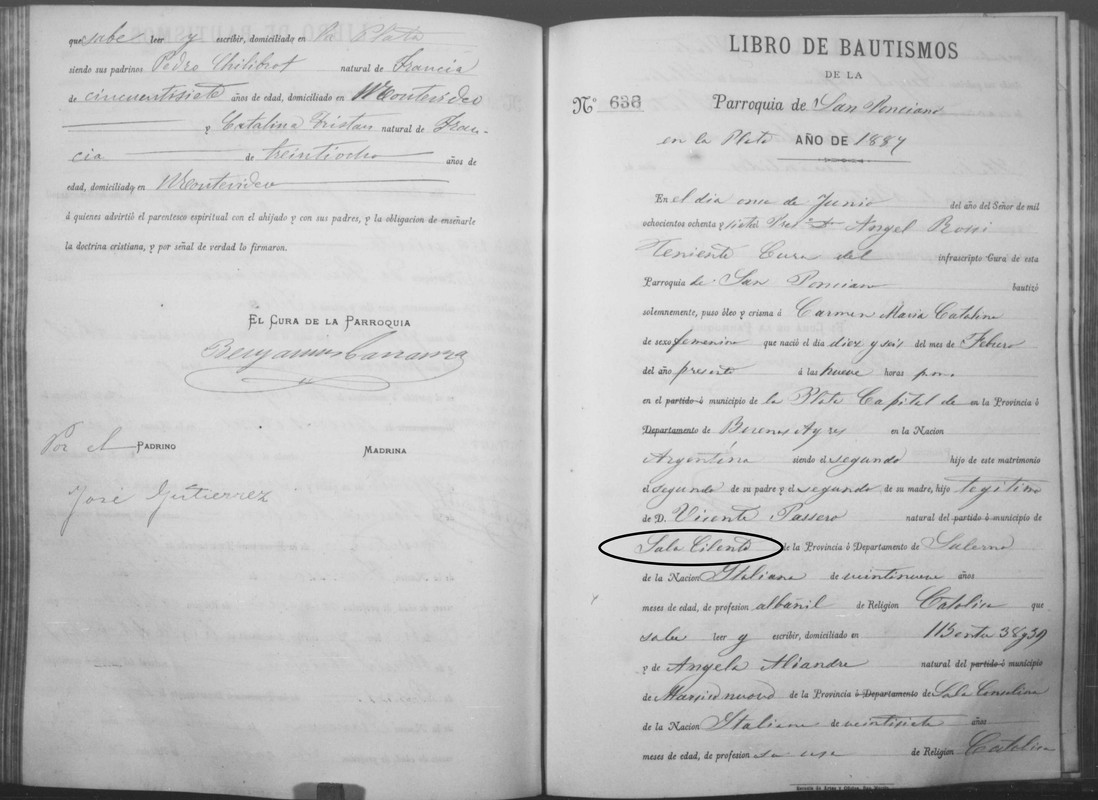 que sabe leer y escribir, domiciliado en la Plata
siendo sus padrinos Pedro Chilibrot natural de Francia
de cincuentisiete años de edad, domiciliado en Montevideo
y Catalina Tristan natural de Fran-
cia de treintiocho años de
edad, domiciliado en Montevideo
á quienes advirtió el parentesco espiritual con el ahijado y con sus padres, y la obligacion de enseñarle
la doctrina cristiana, y por señal de verdad lo firmaron.
EL CURA DE LA PARROQUIA
Benjamin
Por el PADRINO MADRINA
José Gutierrez
LIBRO DE BAUTISMOS
DE LA
Nº 636 Parroquia de San Ponciano
en la Plata AÑO DE 1887
En el dia once de Junio del año del Señor de mil
ochocientos ochenta y siete Angel Rossi
Teniente Cura del infrascripto Cura de esta
Parroquia de San Ponciano bautizó
solemnemente, puso óleo y crisma á Carmen Maria Catalina
de sexo femenino que nació el dia diez y seis del mes de Febrero
del año presente á las nueve horas p.m.
en el partido ó municipio de la Plata Capital de en la Provincia ó
Departamento de Buenos Ayres en la Nacion
Argentina siendo el segundo hijo de este matrimonio
el segundo de su padre y el segundo de su madre, hijo legitimo
de D. Vicente Passero natural del partido ó municipio de
Sala Cilento de la Provincia ó Departamento de Salerno
de la Nacion Italiana de veintinueve años
meses de edad, de profesion albañil de Religion Catolica que
sabe leer y escribir, domiciliado en 113 entre 38 y 39
y de Angela Aliandre natural del partido ó municipio
de Marsico nuovo de la Provincia ó Departamento de Sala Consilina
de la Nacion Italiana de veintisiete años
meses de edad, de profesion su casa de Religion Catolica